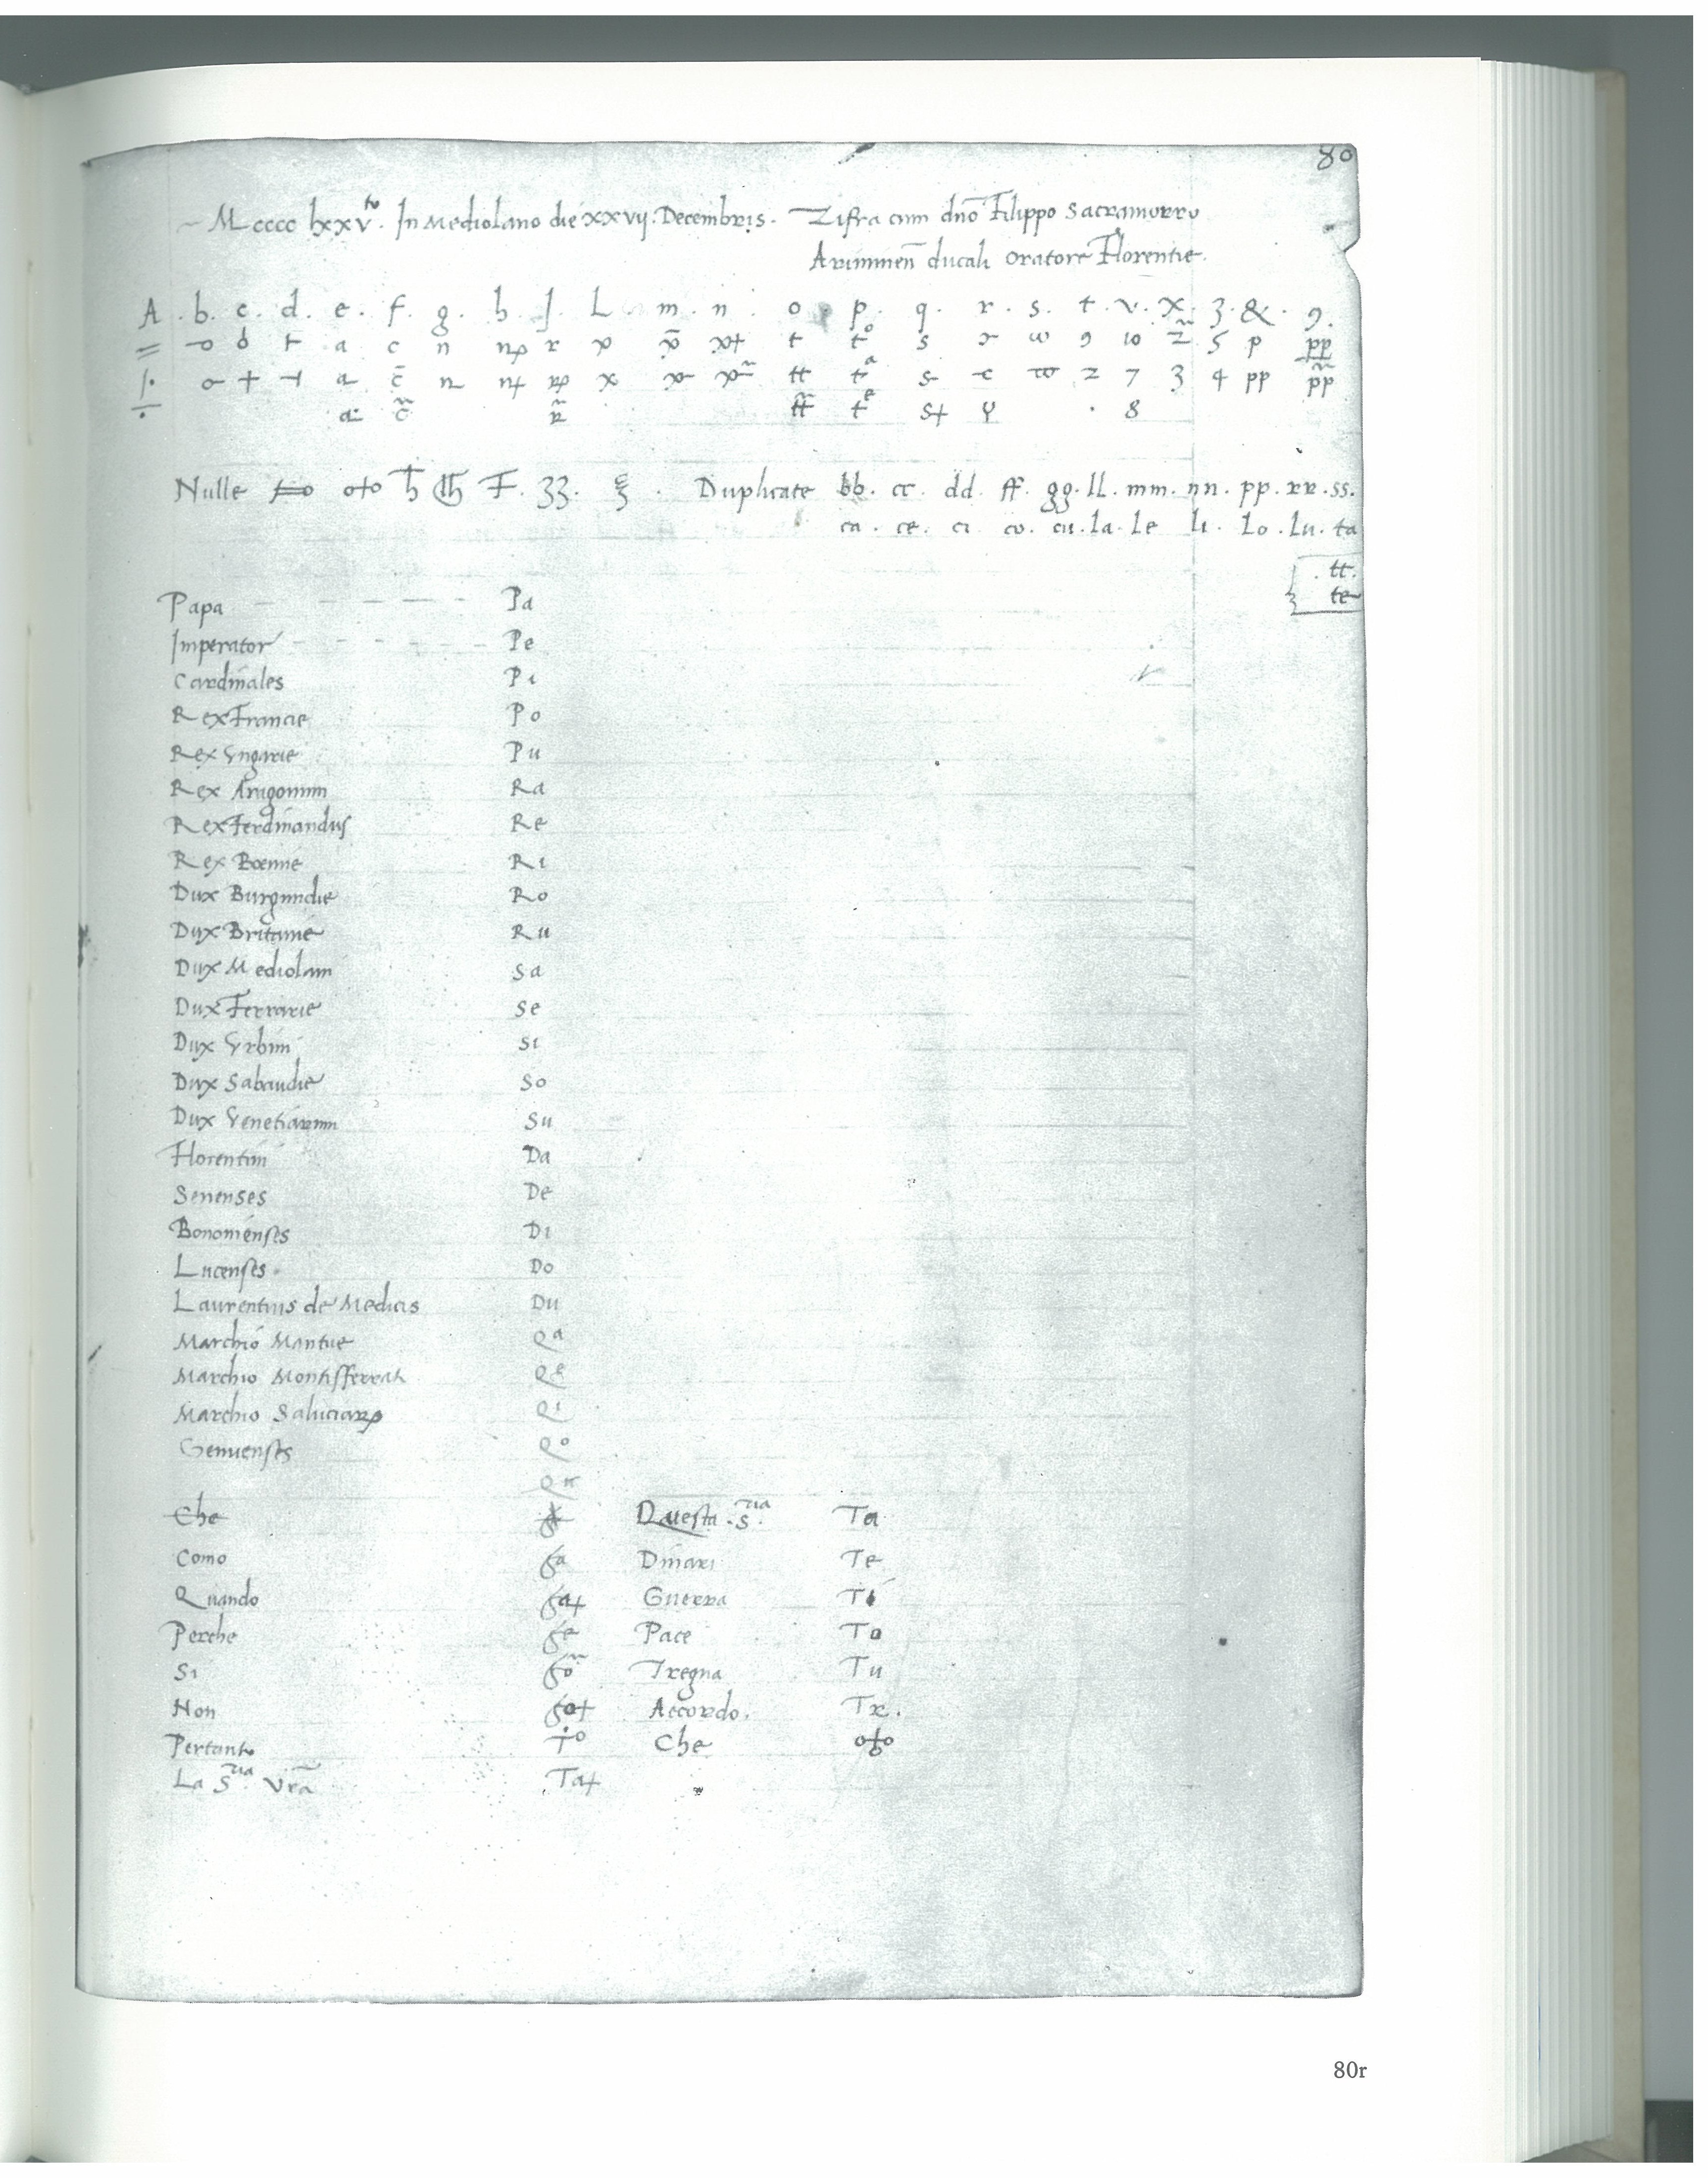 80
M cccc lxxvto. In Mediolano die xxvij. Decembris. Zifra cum dno Filippo Sacramorro
Ariminen ducali oratore Florentie.
A . b . c . d . e . f . g . h . J . L . m . n . o . p . q . r . s . t . v . x . z . & . 9.
a c n r t s 9 10 5 p pp
t s 2 7 3 4 pp pp
8
Nulle Duplicate bb. cc. dd. ff. gg. ll. mm. nn. pp. rr. ss.
ca. ce. ci. co. cu. la. le. li. lo. lu. ta
tt.
te
Papa Pa
Imperator Pe
Cardinales Pi
Rex Francie Po
Rex Vngarie Pu
Rex Aragonum Ra
Rex Ferdinandus Re
Rex Boemie Ri
Dux Burgundie Ro
Dux Britanie Ru
Dux Mediolani Sa
Dux Ferrarie Se
Dux Vrbini Si
Dux Sabaudie So
Dux Venetiarum Su
Florentini Da
Senenses De
Bononienses Di
Lucenses. Do
Laurentius de Medicis Du
Marchio Mantue Qa
Marchio Montisferrati Qe
Marchio Saluciarum Qi
Genuenses Qo
Qu
Che Questa Sria Ta
Como Dinari Te
Quando Guerra Ti
Perche Pace To
Si Tregua Tu
Non Accordo. Tr.
Pertanto To Che
La Sria Vra Ta+
80r